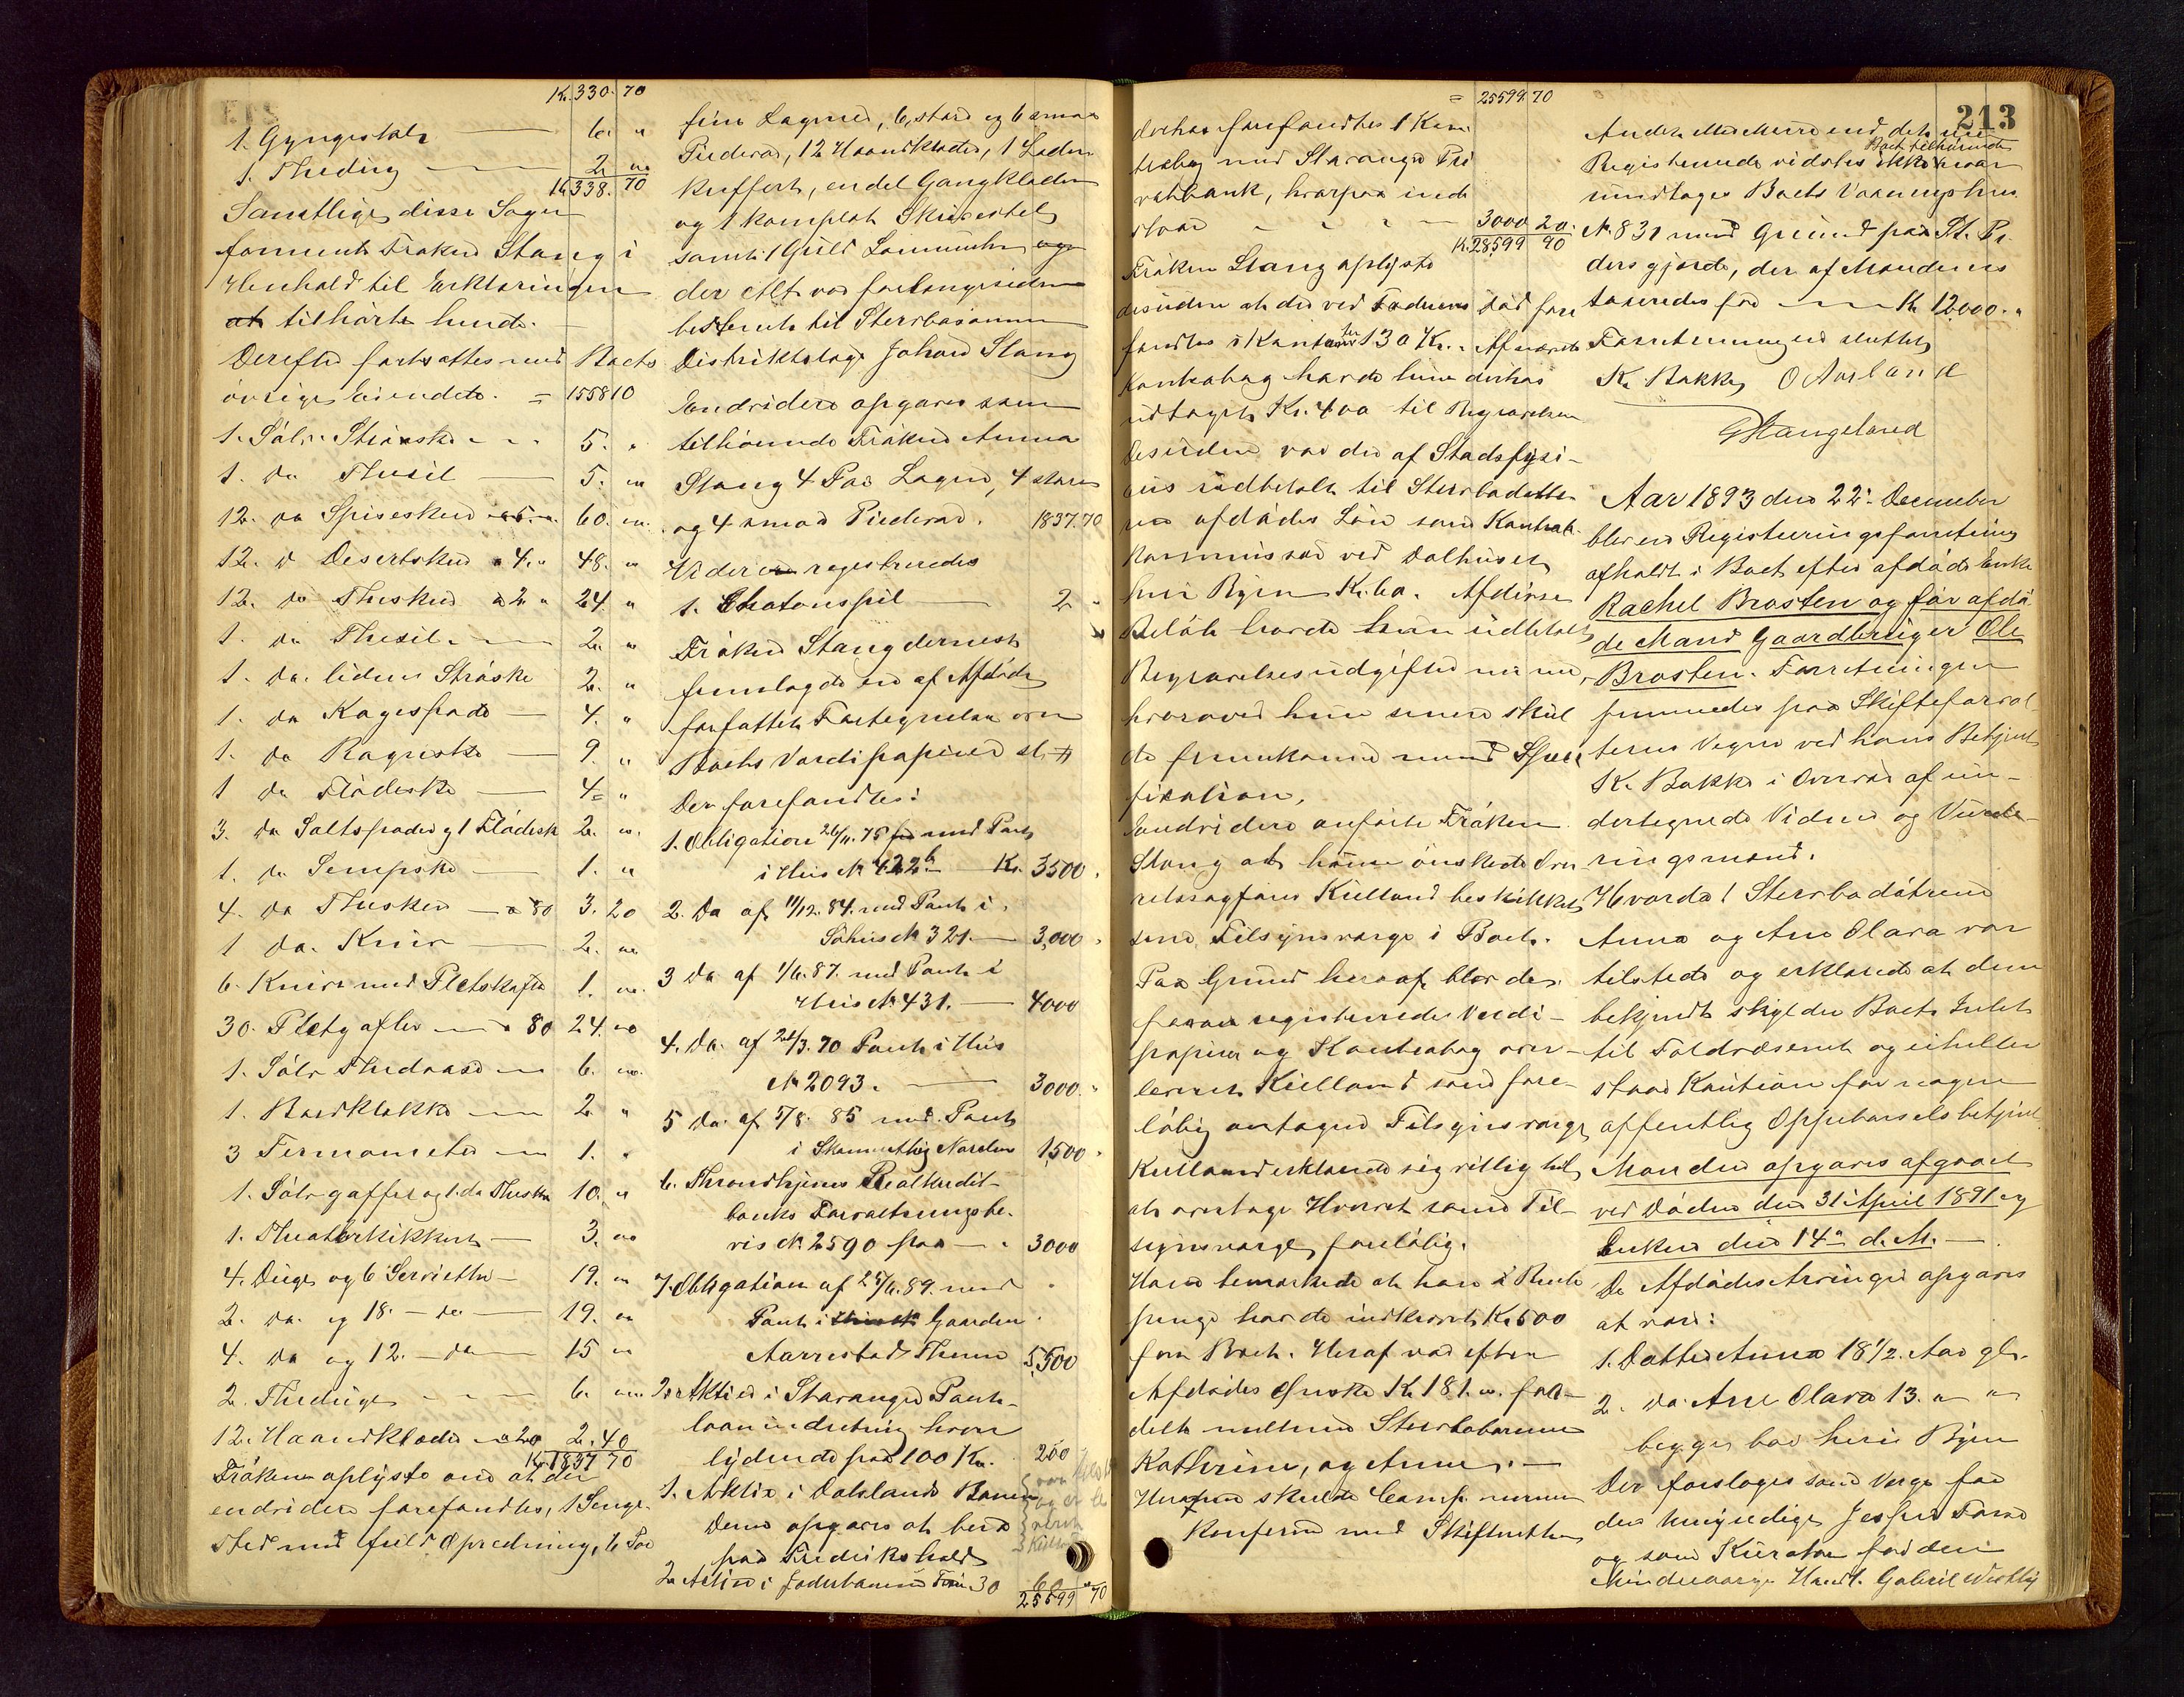 Kr. 330. 70
1. Gyngestol — 6. "
1. Thedug — 2. "
Kr. 338. 70
Samtlige disse Sager
forment Frøken Stang i
Henhold til Erklæringen
at tilhørte hende.
Derefter fortsattes med Boets
øvrige Eiendele. = 1558 10
1. Sølv Strøske — 5. "
1. do Thesil — 5. "
12. do Spiseskeer a 5. " 60. "
12. do Desertskeer a 4. " 48. "
12. do Theskeer a 2 " 24. "
1. do Thesil — 2. "
1. do. liden Strøske 2. "
1. do Kagespade — 4. "
1. do Ragueske — 9. "
1 do Flødeske — 4. "
3. do Saltspader og 1 Flødesk 2. "
1. do Sempske — 1. "
4. do Theskeer — a 80 3. 20
1 do. Kniv — 2. "
6. Knive med Pletskafter 1. "
30. Pletgafler — a 80 24. "
1. Sølv Thedaase — 6. "
1. Bordklokke — 2 "
3 Termometer — 1. "
1. Sølvgaffel og 1. do Theske 10. "
1. Theaterkikkert — 3. "
4. Duge og 6 Servietter — 19. "
2. do. og 18. — do — 19. "
4. do og 12. — do — 15 "
2. Theduge — 6. "
12. Haandklæder a 20 2. 40
Kr. 1837 70
Frøkenen oplyste end at der
endvidere forefandtes, 1 Senge-
sted med fuld Opredning, 6 Par
fine Lagner, 6 store og 6 smaa
Pudevar, 12 Haandklæder, 1 Læder
kuffert, en del Gangklæder
og 1 komplet Skrivestel
samt 1 Guld Lommeuhr og
der Alt var for længe siden
bestemt til Sterbosønnen
Distriktslæge Johan Stang
Endvidere opgaves som
tilhørende Frøken Anna
Stang 4 Par Lagen, 4 store
og 4 smaa Pudevar. 1837. 70
Videre registreredes
1. Chatonspil — 2 "
Frøken Stang dernæst
fremlagde en af Afdøde
forfattet Fortegnelse over
Boets Værdipapirer
Der forefandtes:
1. Obligation 26/11. 75 med Pant
i Hus No 422b — Kr. 3500.
2. Do af 11/12. 84. med Pant i
Søhus No 321. — 3,000
3 Do af 1/6. 87. med Pant i
Hus No 431. — 4000
4. Do. af 24/3. 70 Pant i Hus
No 2093. — 3000. "
5 Do. af 5/8. 85 med Pant
i Skonnertbrig Norden 1,500 "
6. Throndhjems Realkredit-
banks Forvaltningsbe-
vis No 2590 paa — 3000
7. Obligation af 25/6. 89. med
Pant i Gaarden
Aarrestad Theme 5,500
Aktier i Stavanger Pant-
laanindretning hver
lydende paa 100 Kr. 200
1. Aktie i Dalslands Banen
Denne opgaves at bero
paa Fredrikshald
2 Aktier i Jæderbanen 30 60 "
25599 70
= 25599. 70
derhos forefandtes 1 Kon
trabog med Stavanger Pri
vatbank, hvorpaa inde
staar — 3000 20.
Kr. 28599 90
Frøken Stang oplyste
desuden at der ved Faderens Død fore
fandtes i Kontanter 130 Kr. Af nævnte
Kontrabog havde hun derhos
udtaget Kr. 400 til Begravelsen
Desuden var der af Stadsfysi-
cus udbetalt til Sterbodatter
en afdødes Løn som Kontrol-
kommissær ved Tolhuset
her i Byen Kr. 60. Af disse
Beløb havde hun udbetalt
Begravelsesudgifter m. m.,
hvorover hun senere skul
de fremkomme med Speci
fikation.
Endvidere anførte Frøken
Stang at hun ønskede Over-
retssagfører Kielland beskikket
som Tilsynsværge i Boet.
Paa Grund heraf blev de
foran registrerede Værdi-
papirer og Kontrabog over-
leveret Kielland som fore-
løbig antagen Tilsynsværge
Kielland erklærede sig villig til
at overtage Hvervet som Til-
synsværge foreløbig.
Han bemærkede at han i Rente
penge havde indkrævet Kr. 500
for Boet. Heraf var efter
Afdødes Ønske Kr 181. for-
delt mellem Sterboborene
Kathrine, og Anne. —
Herfra skulde Camp. nærmere
konferere med Skifteretten
213
Andet Mere end det nu
Registrerede vidstes ikke Boet tilhørende
undtagen Boets Vaaningshus
No. 831 med Grund paa St. Pe-
ders gjerde, der af Mændene
taxeredes for — Kr. 12.000. "
Forretningen sluttet
K. Bakke O Aarland
G Stangeland
Aar 1893 den 22. December
blev en Registreringsforretning
afholdt i Boet efter afdøde Enke
Rachel Brosten og før afdø
de Mand Gaardbruger Ole
Brosten. Forretningen
fremmedes paa Skifteforval
terens Vegne ved hans Betjent
K. Bakke i Overvær af un-
dertegnede Vidner og Vurde-
ringsmænd.
Hvorda! Sterbodøtrene
Anna og Ane Olava var
tilstede og erklærede at dem
bekjendt skylder Boet Intet
til Toldvæsenet og ei heller
staar Kaution for nogen
offentlig Oppebørselsbetjent.
Manden opgaves afgaaet
ved Døden den 31 April 1891 og
Enken den 14de d. M. —
De Afdødes Arvinger opgaves
at være:
1. Datter Anna 18 1/2. Aar gl.
2. do. Ane Olava 13. " "
begge bor her i Byen
Der forsloges som Værge for
den Umyndige Jesper Tame
og som Kurator for den
Mindreaarige Handl. Gabriel Westby